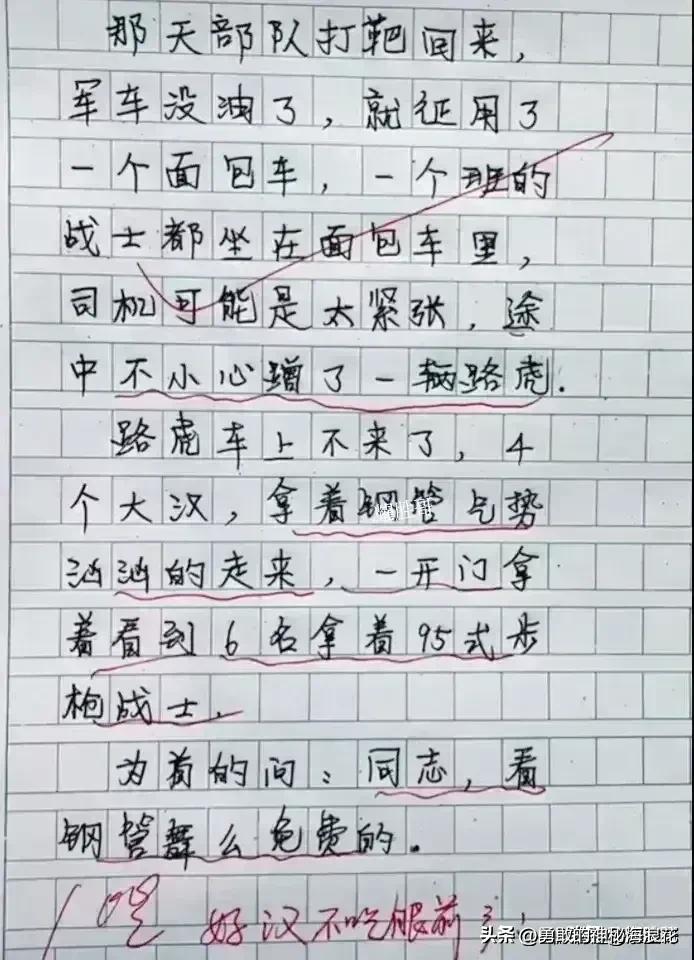 那天部队打靶回来，
军车没油了，就征用了
一个面包车，一个班的
战士都坐在面包车里，
司机可能是太紧张，途
中不小心蹭了一辆路虎.
路虎车上不来了，4
个大汉，拿着钢管气势
汹汹的走来，一开门拿
着看到6名拿着95式步
枪战士，
为首的问：同志，看
钢管舞么免费的.
好汉不吃眼前亏
头条 @勇敢的